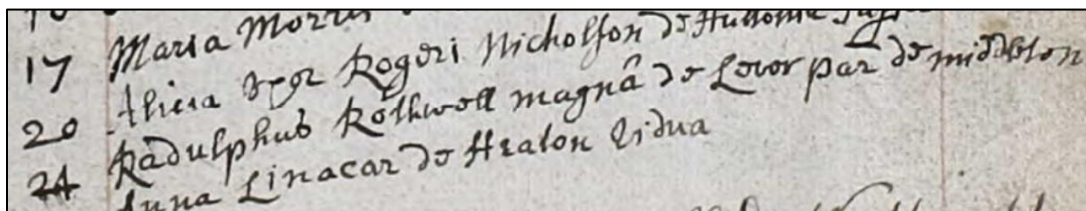 17 Maria Morris
20 Alicia Uxor Rogeri Nicholson de
24 Radulphus Rothwell magnâ de Lever par de middleton
Anna Linacar de Heaton Vidua